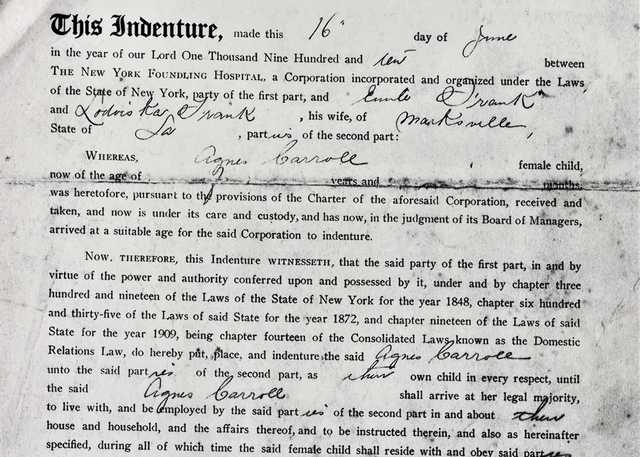 This Indenture, made this 16" day of June
in the year of our Lord One Thousand Nine Hundred and ten between
THE NEW YORK FOUNDLING HOSPITAL, a Corporation incorporated and organized under the Laws
of the State of New York, party of the first part, and Emile
and , his wife, of Marksville,
State of La , parties of the second part:
WHEREAS, Agnes Carroll female child,
now of the age of years and months,
was heretofore, pursuant to the provisions of the Charter of the aforesaid Corporation, received and
taken, and now is under its care and custody, and has now, in the judgment of its Board of Managers,
arrived at a suitable age for the said Corporation to indenture.
NOW, THEREFORE, this Indenture WITNESSETH, that the said party of the first part, in and by
virtue of the power and authority conferred upon and possessed by it, under and by chapter three
hundred and nineteen of the Laws of the State of New York for the year 1848, chapter six hundred
and thirty-five of the Laws of said State for the year 1872, and chapter nineteen of the Laws of said
State for the year 1909, being chapter fourteen of the Consolidated Laws known as the Domestic
Relations Law, do hereby put, place, and indenture the said Agnes Carroll
unto the said parties of the second part, as their own child in every respect, until
the said Agnes Carroll shall arrive at her legal majority,
to live with, and be employed by the said parties of the second part in and about their
house and household, and the affairs thereof, and to be instructed therein, and also as hereinafter
specified, during all of which time the said female child shall reside with and obey said parties